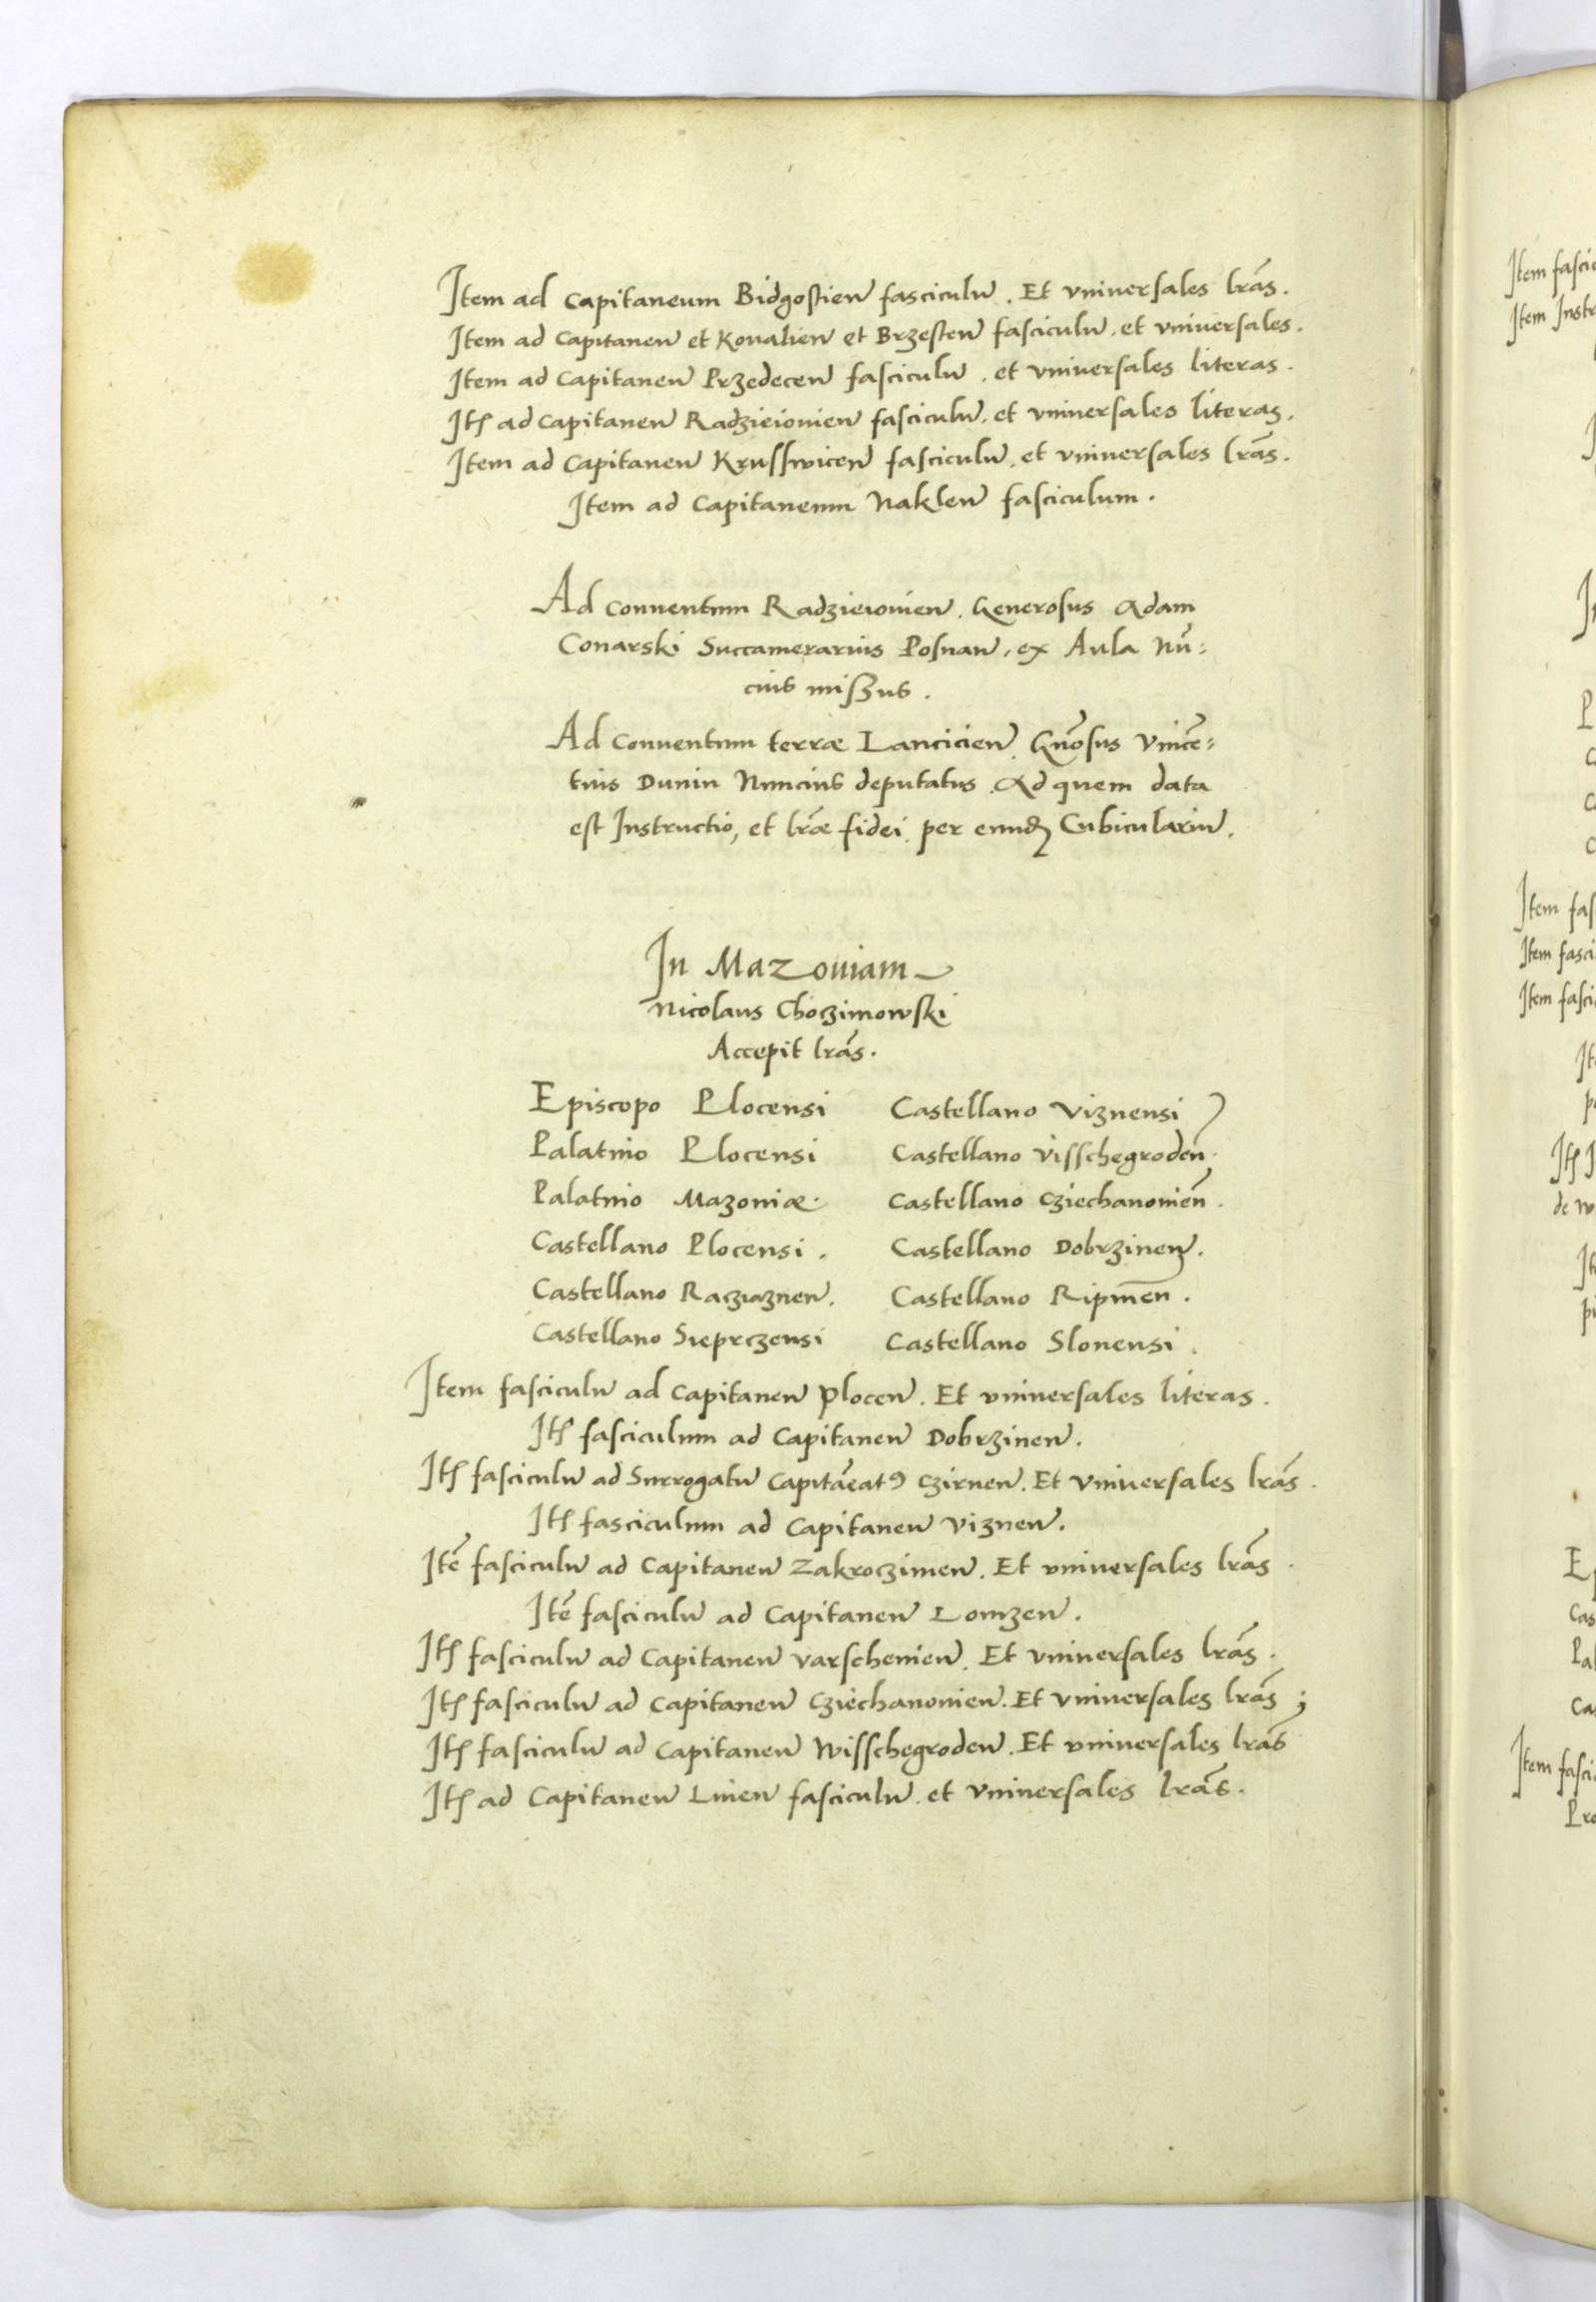 Item ad Capitaneum Bidgostien̄ fasciculū. Et vniuersales lrās.
Item ad Capitaneū et Koualien̄ et Brzesten̄ fasciculū. et vniuersales.
Item ad Capitaneū Przedecen̄ fasciculū. et vniuersales literas.
Itē ad Capitaneū Radzieiouien̄ fasciculū. et vniuersales literas.
Item ad Capitaneū Krusswicen̄ fasciculū. et vniuersales lrās.
Item ad Capitaneum Naklen̄ fasciculum.
Ad Conuentum Radzieiouien̄. Generosus Adam
Conarski Succamerarius Posnan̄. ex Aula Nū:
cius missus.
Ad Conuentum terræ Lancicien̄. Gnōsus Vincē:
tius Dunin Nuncius deputatus. Ad quem data
est Instructio, et lrǣ fidei. per eundꝫ Cubiculariū.
In Mazouiam
Nicolaus Choczimowski
Accepit lrās.
Episcopo Plocensi
Castellano Viznensi
Palatino Plocensi
Castellano Visschegroden̄.
Palatino Mazouiæ.
Castellano Cziechanouien̄.
Castellano Plocensi.
Castellano Dobrzinen̄.
Castellano Racziaznen̄.
Castellano Ripinen̄.
Castellano Sieprczensi
Castellano Slonensi.
Item fasciculū ad Capitaneū Plocen̄. Et vniuersales literas.
Itē fasciculum ad Capitaneū Dobrzinen̄.
Itē fasciculū ad Surrogatū Capitāeatꝰ Czirnen̄. Et Vniuersales lrās.
Itē fasciculum ad Capitaneū Viznen̄.
Itē fasciculū ad Capitaneū Zakroczimen̄. Et vniuersales lrās.
Itē fasciculū ad Capitaneū Lomzen̄.
Itē fasciculū ad Capitaneū Varscheuien̄. Et vniuersales lrās.
Itē fasciculū ad Capitaneū Cziechanouien̄. Et vniuersales lrās;
Itē fasciculū ad Capitaneū Wisschegroden̄. Et vniuersales lrās
Itē ad Capitaneū Liuen̄ fasciculū. et Vniuersales lrās.
Item
Item
Item
Item
Item
Item